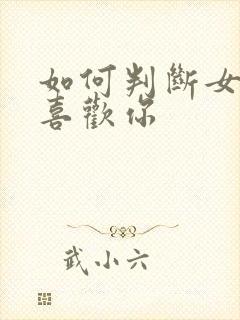 如何判斷女
喜歡你
武小六